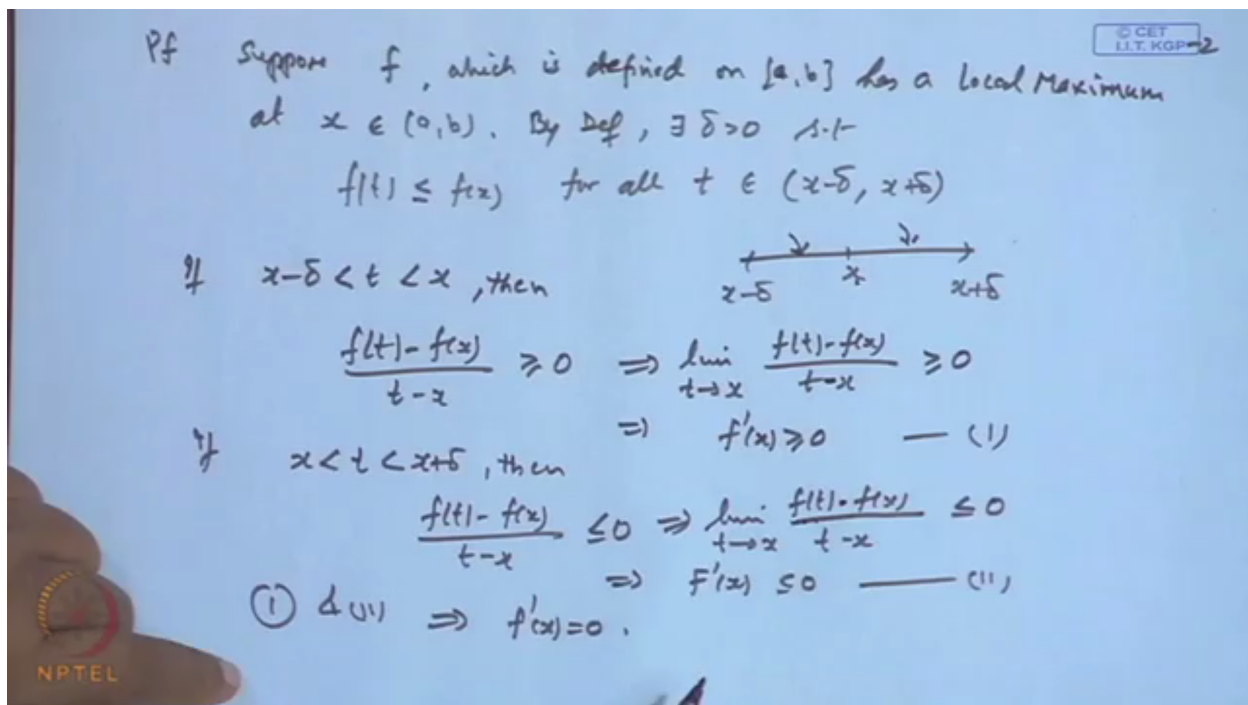 © CET
I.I.T. KGP
-2
Pf Suppose f, which is defined on [a,b] has a Local Maximum
at x ∈ (a,b). By Def, ∃ δ>0 s.t
f(t) ≤ f(x) for all t ∈ (x-δ, x+δ)
If x-δ < t < x, then
x-δ x x+δ
f(t)-f(x) / t-x ≥ 0 ⇒ lim t→x f(t)-f(x) / t-x ≥ 0
⇒ f'(x) ≥ 0 — (I)
If x < t < x+δ, then
f(t)-f(x) / t-x ≤ 0 ⇒ lim t→x f(t)-f(x) / t-x ≤ 0
⇒ F'(x) ≤ 0 — (II)
(I) & (II) ⇒ f'(x)=0.
NPTEL